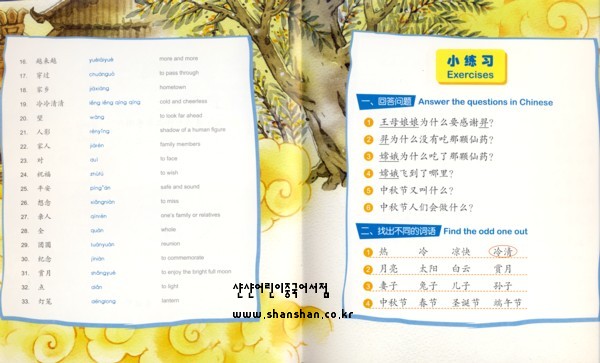 16. 越来越 yuèláiyuè more and more
17. 穿过 chuānguò to pass through
18. 家乡 jiāxiāng hometown
19. 冷冷清清 lěng lěng qīng qīng cold and cheerless
20. 望 wàng to look far ahead
21. 人影 rényǐng shadow of a human figure
22. 家人 jiārén family members
23. 对 duì to face
24. 祝福 zhùfú to wish
25. 平安 píng'ān safe and sound
26. 想念 xiǎngniàn to miss
27. 亲人 qīnrén one's family or relatives
28. 全 quán whole
29. 团圆 tuányuán reunion
30. 纪念 jìniàn to commemorate
31. 赏月 shǎngyuè to enjoy the bright full moon
32. 点 diǎn to light
33. 灯笼 dēnglong lantern
小练习
Exercises
一、回答问题 Answer the questions in Chinese
1 王母娘娘为什么要感谢羿?
2 羿为什么没有吃那颗仙药?
3 嫦娥为什么吃了那颗仙药?
4 嫦娥飞到了哪里?
5 中秋节又叫什么?
6 中秋节人们会做什么?
二、找出不同的词语 Find the odd one out
1 热 冷 凉快 冷清
2 月亮 太阳 白云 赏月
3 妻子 兔子 儿子 孙子
4 中秋节 春节 圣诞节 端午节
샨샨어린이중국어서점
www.shanshan.co.kr